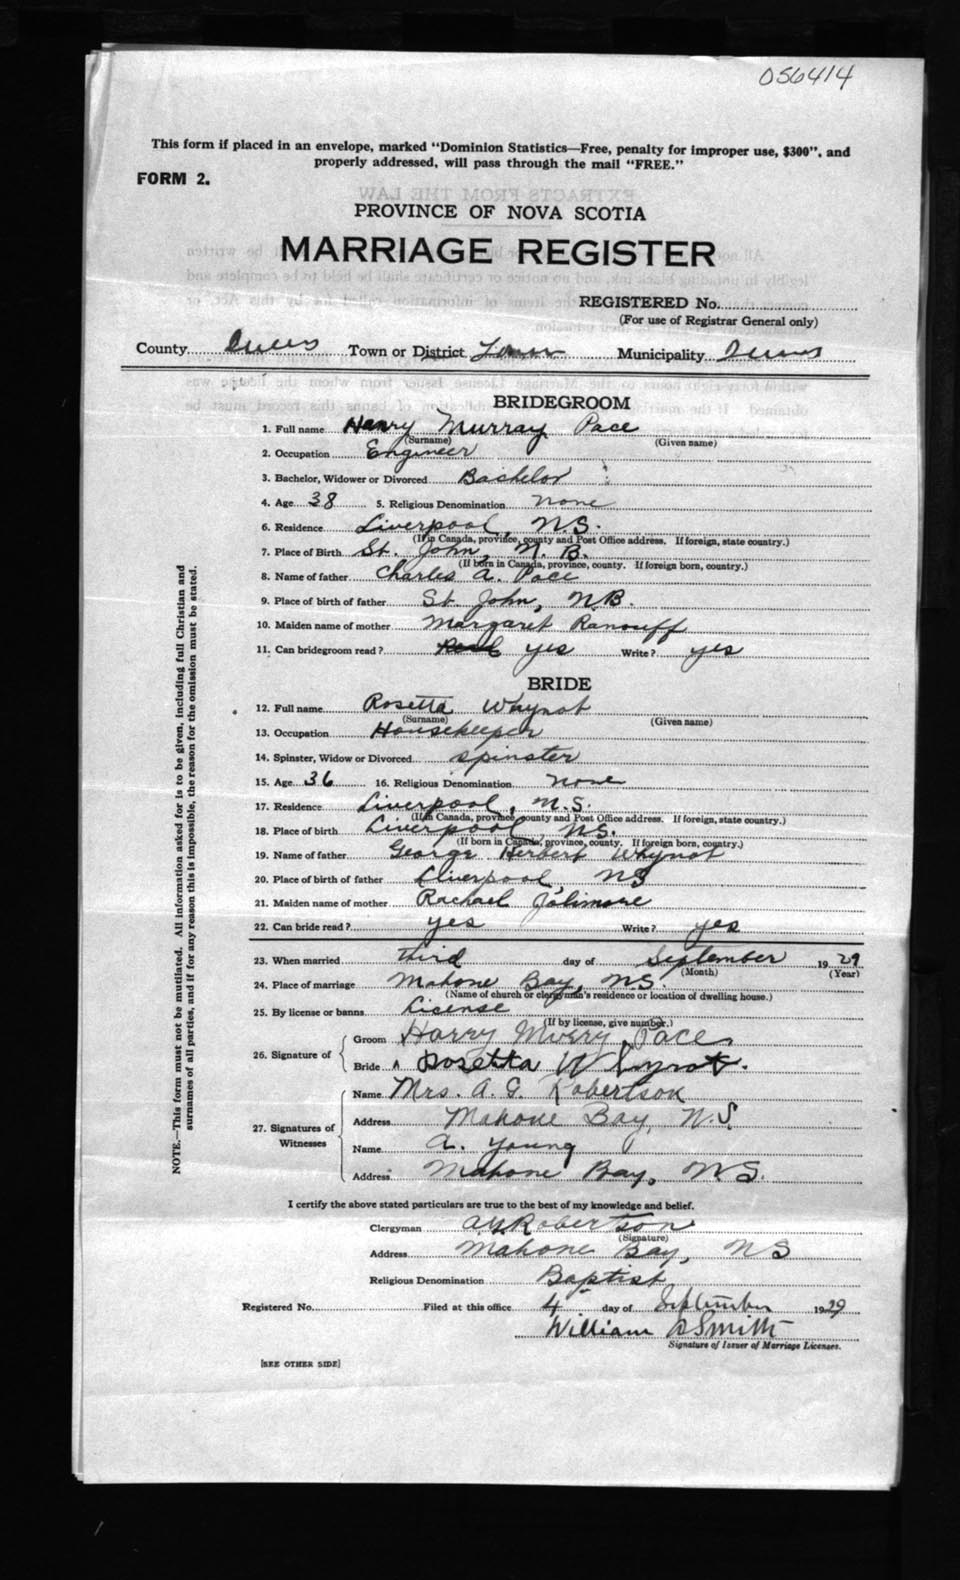 056414
This form if placed in an envelope, marked "Dominion Statistics—Free, penalty for improper use, $300", and
properly addressed, will pass through the mail "FREE."
FORM 2.
PROVINCE OF NOVA SCOTIA
MARRIAGE REGISTER
REGISTERED No.
(For use of Registrar General only)
County Town or District Municipality
BRIDEGROOM
1. Full name Henry Murray Pace
(Surname) (Given name)
2. Occupation Engineer
3. Bachelor, Widower or Divorced Bachelor
4. Age 38 5. Religious Denomination none
6. Residence Liverpool, N.S.
(If in Canada, province, county and Post Office address. If foreign, state country.)
7. Place of Birth St. John, N.B.
(If born in Canada, province, county. If foreign born, country.)
8. Name of father Charles A. Pace
9. Place of birth of father St. John, N.B.
10. Maiden name of mother Margaret
11. Can bridegroom read? yes Write? yes
BRIDE
12. Full name Rosetta Whynot
(Surname) (Given name)
13. Occupation Housekeeper
14. Spinster, Widow or Divorced spinster
15. Age 36 16. Religious Denomination none
17. Residence Liverpool, N.S.
(If in Canada, province, county and Post Office address. If foreign, state country.)
18. Place of birth Liverpool, N.S.
(If born in Canada, province, county. If foreign born, country.)
19. Name of father George Herbert Whynot
20. Place of birth of father Liverpool, NS
21. Maiden name of mother Rachael Jolimore
22. Can bride read? yes Write? yes
23. When married third day of September 1929
(Month) (Year)
24. Place of marriage Mahone Bay, N.S.
(Name of church or clergyman's residence or location of dwelling house.)
25. By license or banns License
(If by license, give number.)
26. Signature of
Groom Harry Pace
Bride Rosetta Whynot.
27. Signatures of Witnesses
Name Mrs. A. G. Robertson
Address Mahone Bay, N.S.
Name A. Young
Address Mahone Bay, N.S.
I certify the above stated particulars are true to the best of my knowledge and belief.
Clergyman Robertson
(Signature)
Address Mahone Bay, NS
Religious Denomination Baptist
Registered No. Filed at this office 4 day of September 1929
William Smith
Signature of Issuer of Marriage Licenses.
[SEE OTHER SIDE]
NOTE.—This form must not be mutilated. All information asked for is to be given, including full Christian and
surnames of all parties, and if for any reason this is impossible, the reason for the omission must be stated.